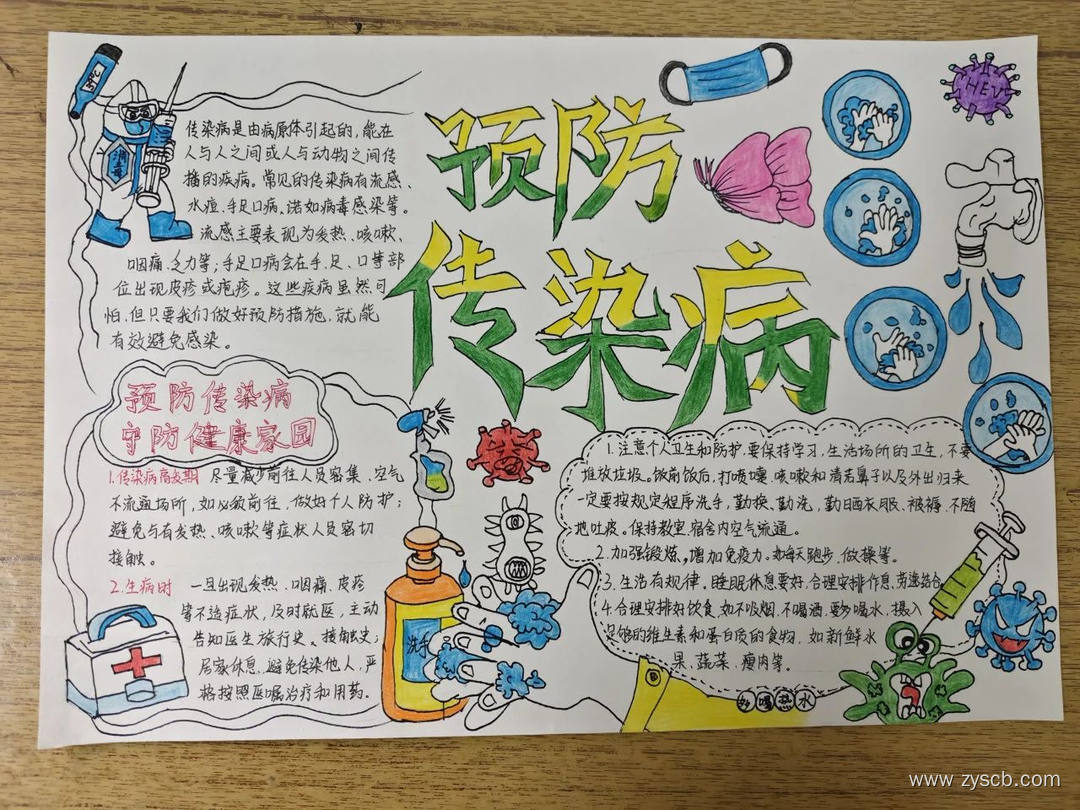 预防
传染病
39℃
消毒
HEV
传染病是由病原体引起的,能在
人与人之间或人与动物之间传
播的疾病。常见的传染病有流感、
水痘、手足口病、诺如病毒感染等。
流感主要表现为发热、咳嗽、
咽痛、乏力等;手足口病会在手、足、口等部
位出现皮疹或疱疹。这些疾病虽然可
怕,但只要我们做好预防措施,就能
有效避免感染。
预防传染病
守防健康家园
1.传染病高发期 尽量减少前往人员密集、空气
不流通场所,如必须前往,做好个人防护;
避免与有发热、咳嗽等症状人员密切
接触。
2.生病时 一旦出现发热、咽痛、皮疹
等不适症状,及时就医,主动
告知医生旅行史、接触史;
居家休息,避免传染他人,严
格按照医嘱治疗和用药。
洗手
1.注意个人卫生和防护,要保持学习,生活场所的卫生,不要
堆放垃圾。饭前饭后,打喷嚏、咳嗽和清洁鼻子以及外出归来
一定要按规定程序洗手,勤换、勤洗,勤晒衣服、被褥,不随
地吐痰。保持教室宿舍内空气流通。
2.加强锻炼,增加免疫力。如每天跑步,做操等。
3.生活有规律,睡眠休息要好,合理安排作息,劳逸结合。
4.合理安排好饮食,如不吸烟,不喝酒,要多喝水,摄入
足够的维生素和蛋白质的食物,如新鲜水
果、蔬菜、瘦肉等。
多喝热水
www.zyscb.com